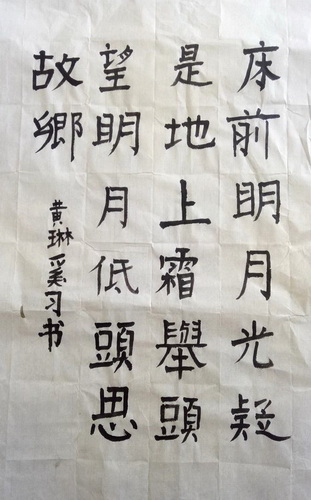 床前明月光疑
是地上霜舉頭
望明月低頭思
故鄉
黄琳奚习书